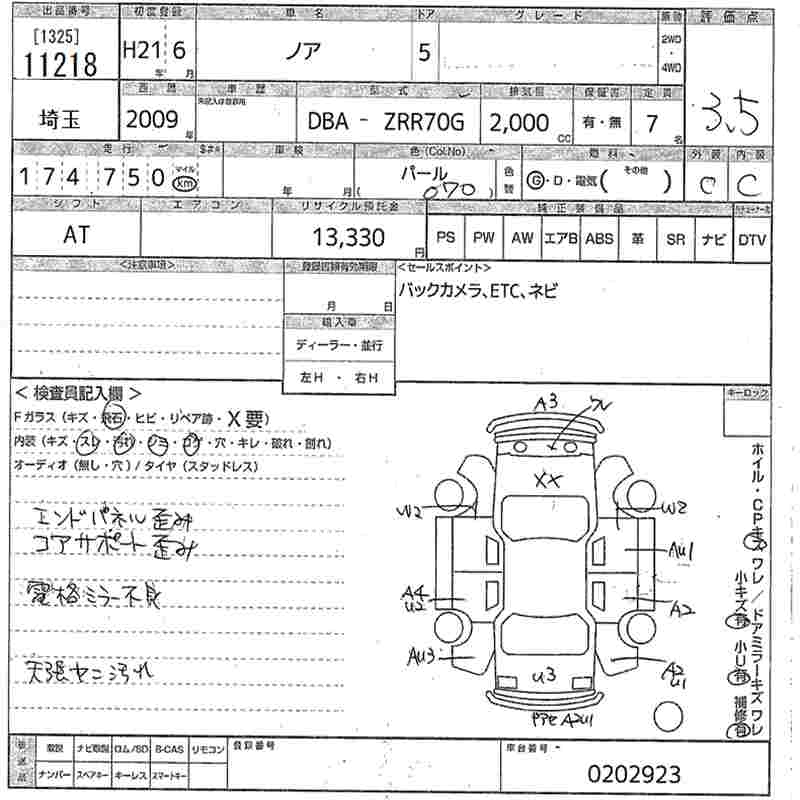 出品番号 初度登録 車名 ドア グレード 駆動 評価点
[1325]
11218 H21 6 ノア 5 2WD・4WD
年 月
西暦 車歴 型式 排気量 保証書 定員 3.5
埼玉 2009年 DBA - ZRR70G 2,000cc 有・無 7名
走行 車検 色(Col.No) 燃料 外装 内装
174750 マイル km 年 月 パール (070) 色替 G・D・電気(その他) C C
シフト エアコン リサイクル預託金 純正装備品
AT 13,330円 PS PW AW エアB ABS 革 SR ナビ DTV
<注意事項> 登録書類有効期限 <セールスポイント>
月 日 バックカメラ、ETC、ネビ
輸入車
ディーラー・並行
左H ・ 右H
<検査員記入欄> キーロック
Fガラス (キズ・飛石・ヒビ・リペア跡・X要)
内装 (キズ・スレ・汚れ・シミ・コゲ・穴・キレ・破れ・割れ)
オーディオ (無し・穴) / タイヤ (スタッドレス)
エンドパネル歪み
コアサポート歪み
電格ミラー不良
天張ヤニ汚れ
A3
XX
W2 W2
AU1
A4
U2 A2
AU3 A2
U1
U3
A2U1
ホイル・CPキズワレ/ドアミラーキズワレ
小キズ有 小U有 補修有
取説 ナビ取説 ロム/SD B-CAS リモコン 登録番号 車台番号
ナンバー スペアキー キーレス スマートキー 0202923